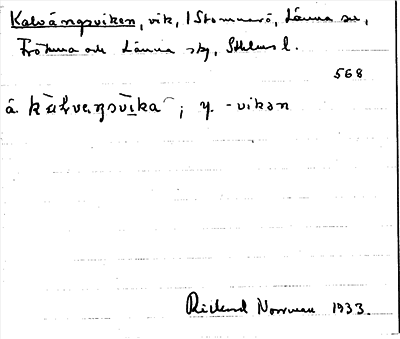 Kalvängsviken, vik, i Stommarö, Länna sn,
Frötuna och Länna skg, Sthlms l.
568
å. ; y. -vikən
Rickard Norrman 1933.